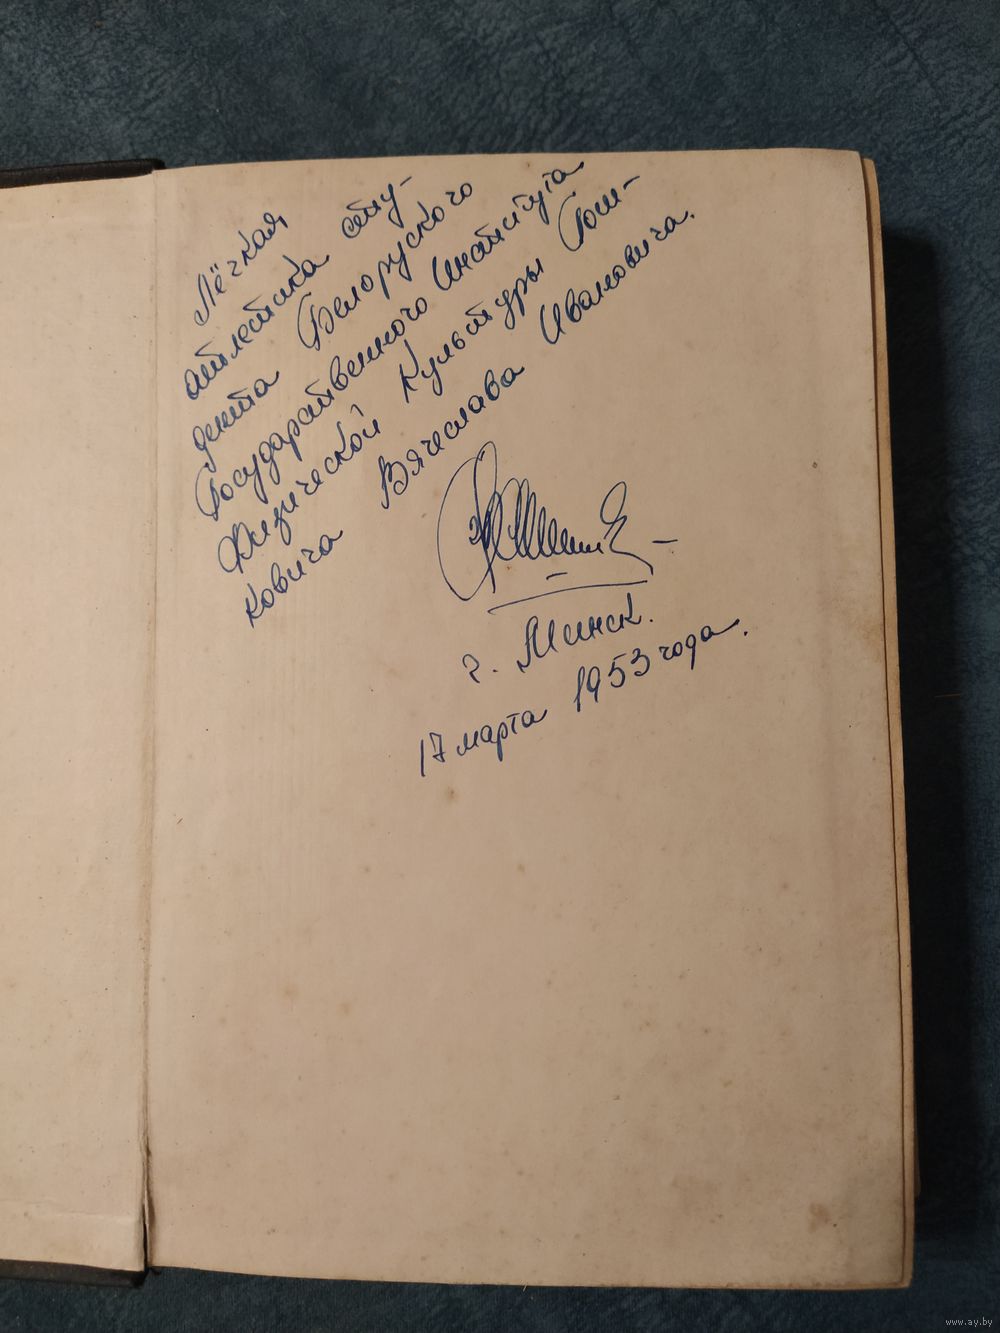 Лёгкая
атлетика сту-
дента Белоруского
Государственного Института
Физической Культуры Гош-
ковича Вячеслава Ивановича.
г. Минск.
17 марта 1953 года.
www.ay.by